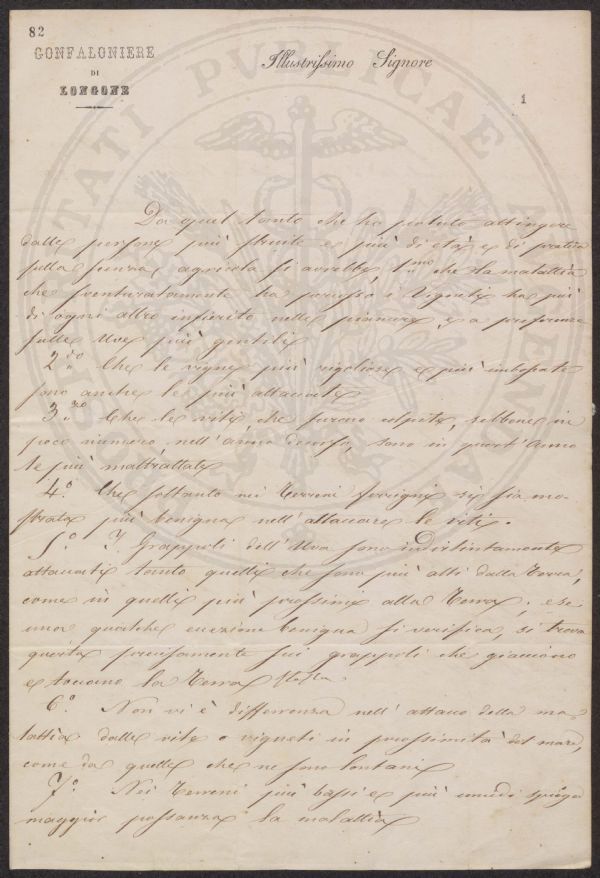 82
GONFALONIERE
DI
LONGONE
Illustrissimo Signore
1
Da quel tanto che ho potuto attingere
dalle persone più istruite e più di età e di pratica
sulla scienza agricola si avrebbe, 1.mo che la malattia
che sventuratamente ha percosso i Vigneti ha più
di ogni altro infierito nelle pianure, e a preferenza
sulle Uve più gentili
2.do Che le vigne più rigogliose e più
sono anche le più attaccate
3.zo Che le viti, che furono colpite, sebbene in
poco numero, nell'anno decorso, sono in quest'Anno
le più maltrattate
4.o Che soltanto nei Terreni ferrigni si sia mo-
strata più benigna nell'attaccare le viti.
5.o I Grappoli dell'Uva sono indistintamente
attaccati tanto quelli che sono più alti dalla Terra,
come in quelli più prossimi alla Terra; e se
una qualche eccezione benigna si verifica, si trova
questa precisamente sui grappoli che giacciono
e toccano la Terra stessa.
6.o Non vi è differrenza nell'attacco della ma-
lattia dalle vite o vigneti in prossimità del mare,
come da quelle che ne sono lontani
7.o Nei Terreni più bassi e più umidi spiega
maggior possanza la malattia